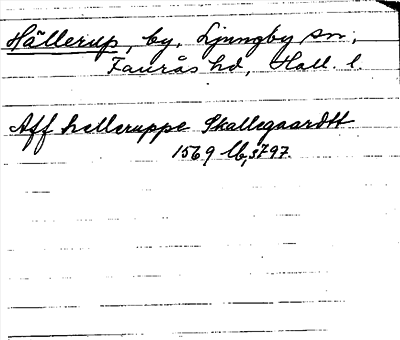 Hällerup, by, Ljungby sn,
Faurås hd, Hall. l.
Aff helleruppe Skallegaardtt
1569 lb, 3797.